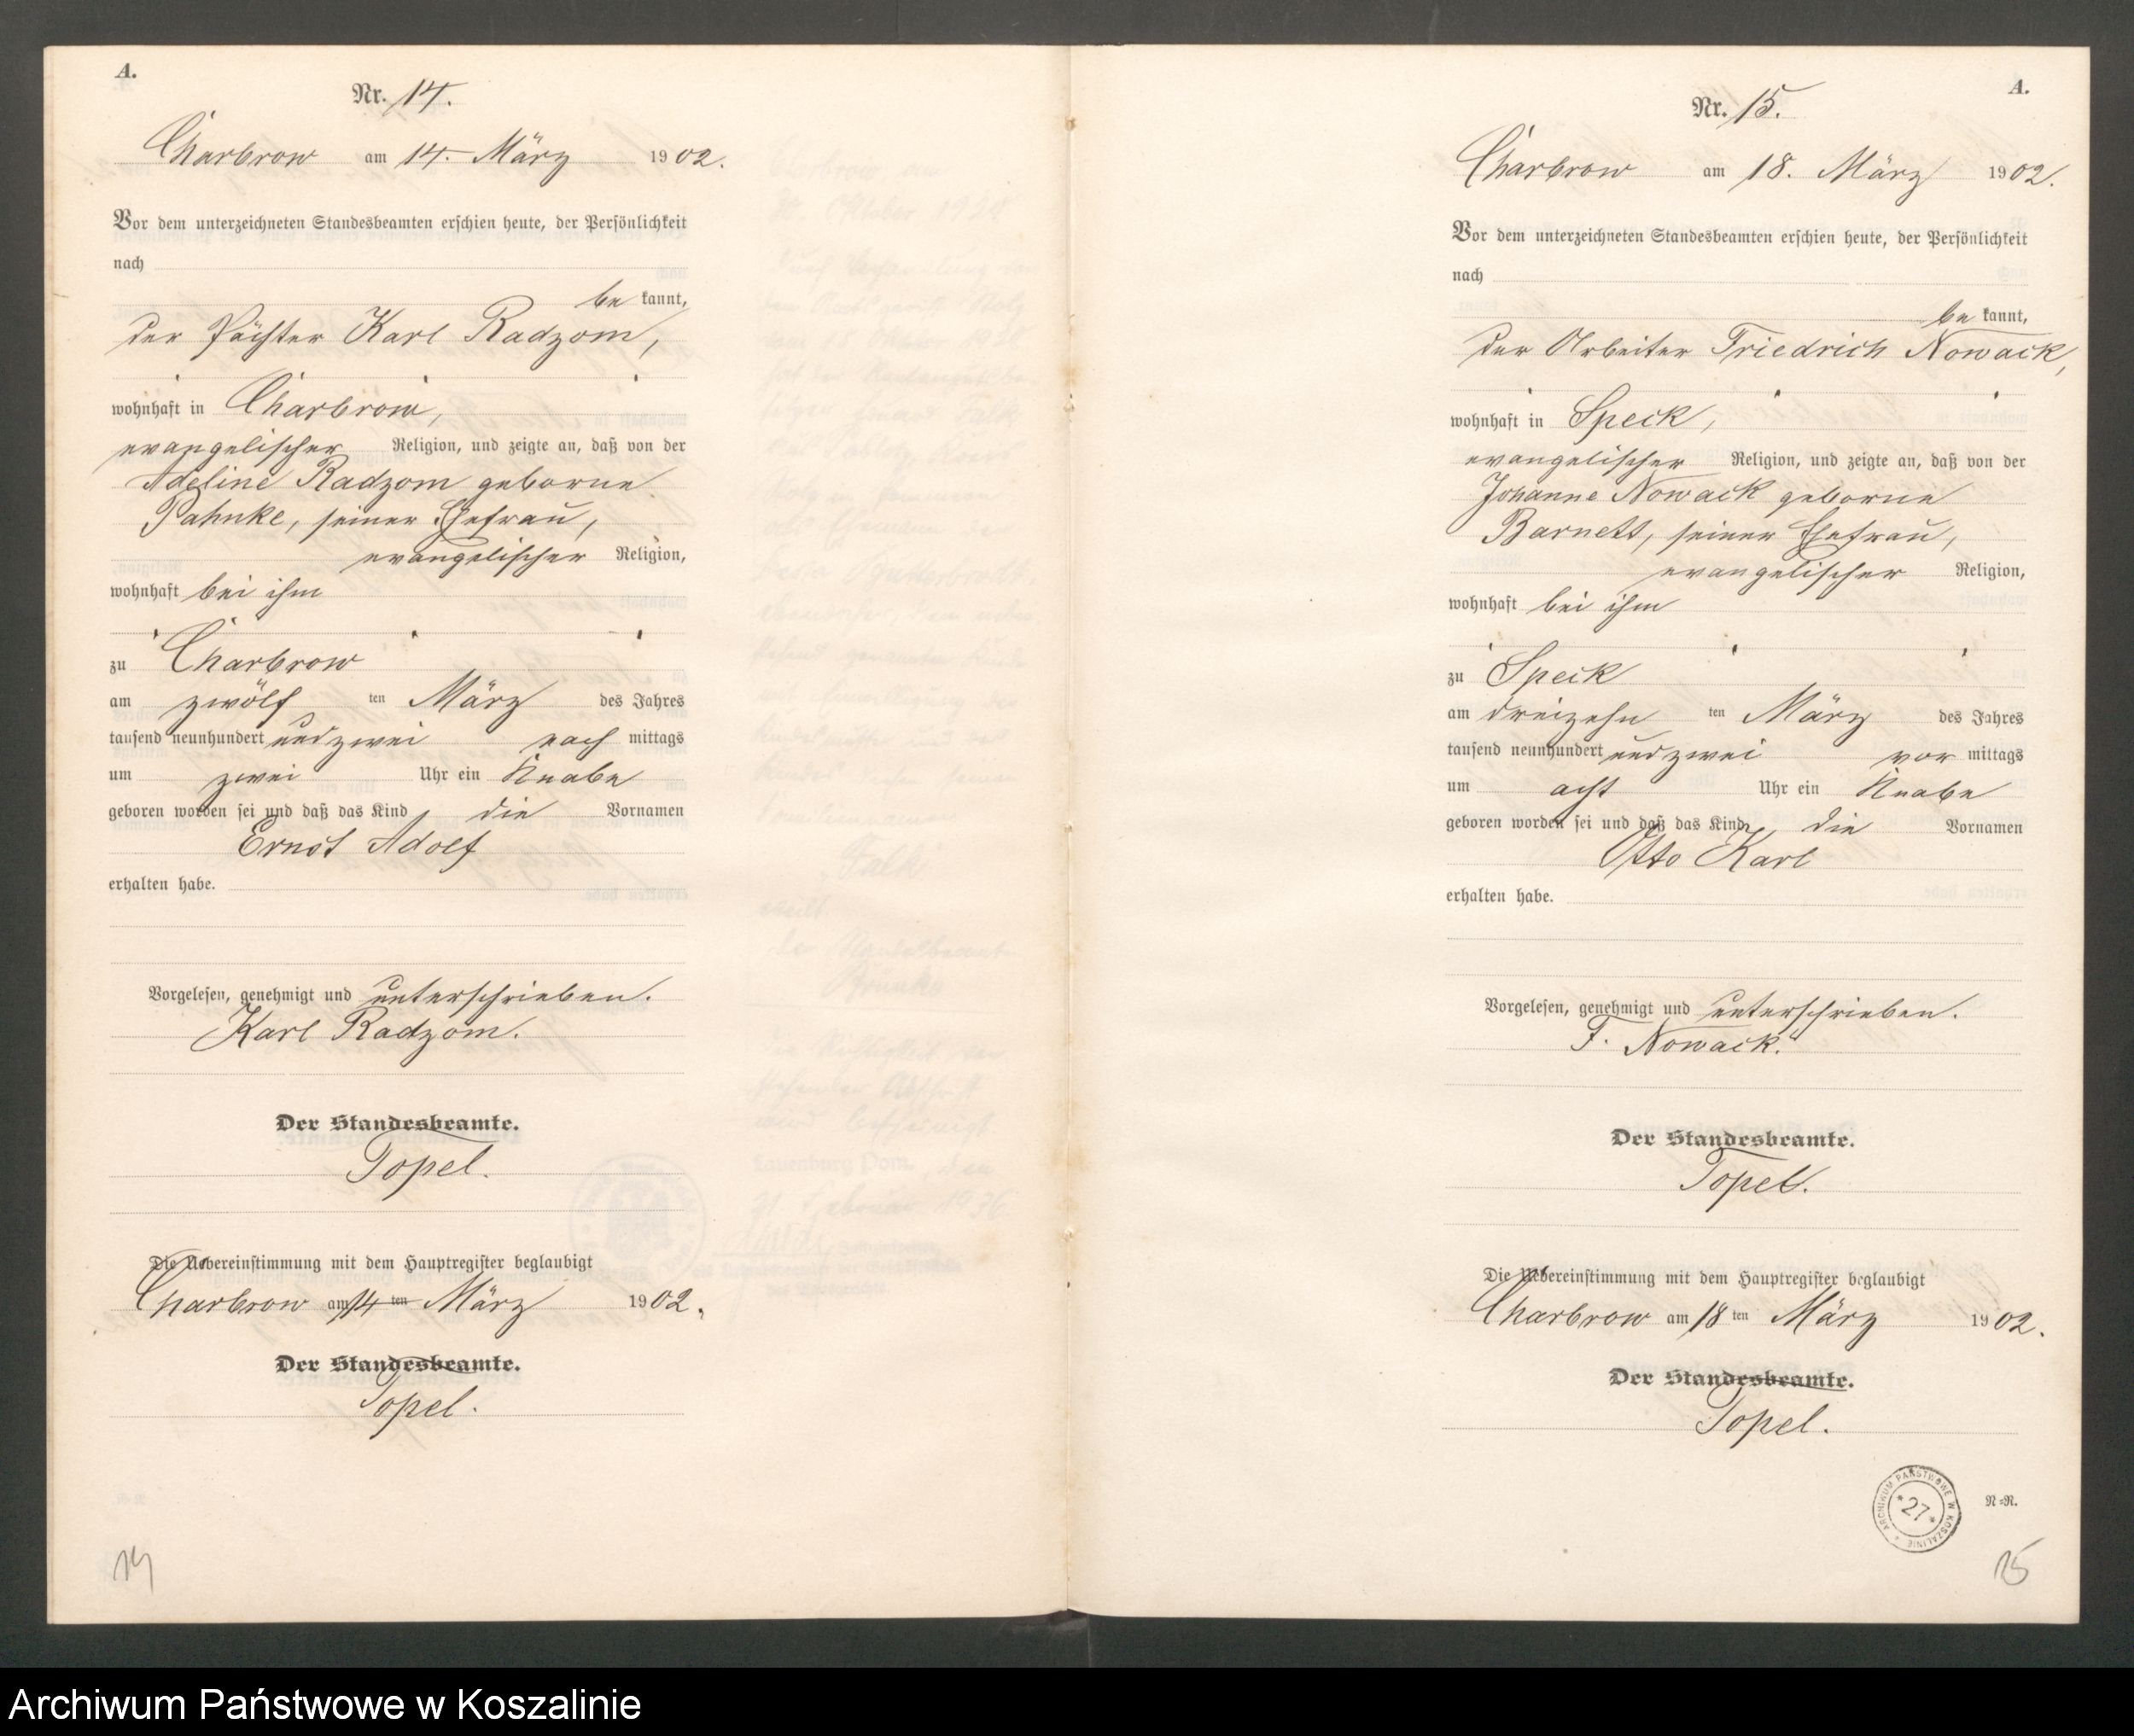 A.
Nr. 14.
Charbrow am 14. März 1902.
Vor dem unterzeichneten Standesbeamten erschien heute, der Persönlichkeit
nach
be kannt,
der Pächter Karl Radzom,
wohnhaft in Charbrow,
evangelischer Religion, und zeigte an, daß von der
Adeline Radzom geborne
Pahnke, seiner Ehefrau,
evangelischer Religion,
wohnhaft bei ihm
zu Charbrow
am zwölf ten März des Jahres
tausend neunhundert und zwei nach mittags
um zwei Uhr ein Knabe
geboren worden sei und daß das Kind die Vornamen
Ernst Adolf
erhalten habe.
Vorgelesen, genehmigt und unterschrieben.
Karl Radzom.
Der Standesbeamte.
Topel.
Die Uebereinstimmung mit dem Hauptregister beglaubigt
Charbrow am 14 ten März 1902.
Der Standesbeamte.
Topel.
14
A.
Nr. 15.
Charbrow am 18. März 1902.
Vor dem unterzeichneten Standesbeamten erschien heute, der Persönlichkeit
nach
be kannt,
der Arbeiter Friedrich Nowack,
wohnhaft in Speck,
evangelischer Religion, und zeigte an, daß von der
Johanne Nowack geborne
Barnett, seiner Ehefrau,
evangelischer Religion,
wohnhaft bei ihm
zu Speck
am dreizehn ten März des Jahres
tausend neunhundert und zwei vor mittags
um acht Uhr ein Knabe
geboren worden sei und daß das Kind die Vornamen
Otto Karl
erhalten habe.
Vorgelesen, genehmigt und unterschrieben.
F. Nowack.
Der Standesbeamte.
Topel.
Die Uebereinstimmung mit dem Hauptregister beglaubigt
Charbrow am 18 ten März 1902.
Der Standesbeamte.
Topel.
ARCHIWUM PAŃSTWOWE W KOSZALINIE
*27*
N=R.
15
Archiwum Państwowe w Koszalinie